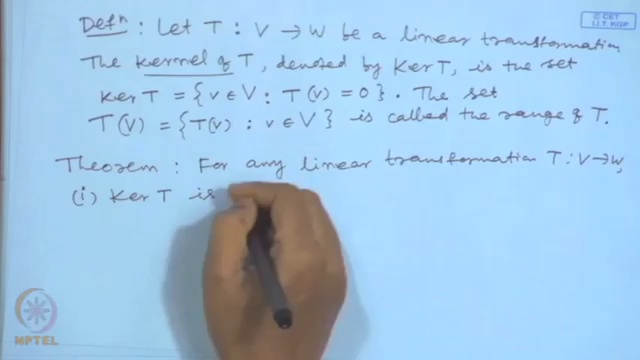 © CET
I.I.T. KGP
Defⁿ : Let T : V → W be a linear transformation
The Kernel of T, denoted by Ker T, is the set
Ker T = {v ∈ V : T(v) = 0}. The set
T(V) = {T(v) : v ∈ V} is called the range of T.
Theorem : For any linear transformation T : V → W,
(i) Ker T is
NPTEL